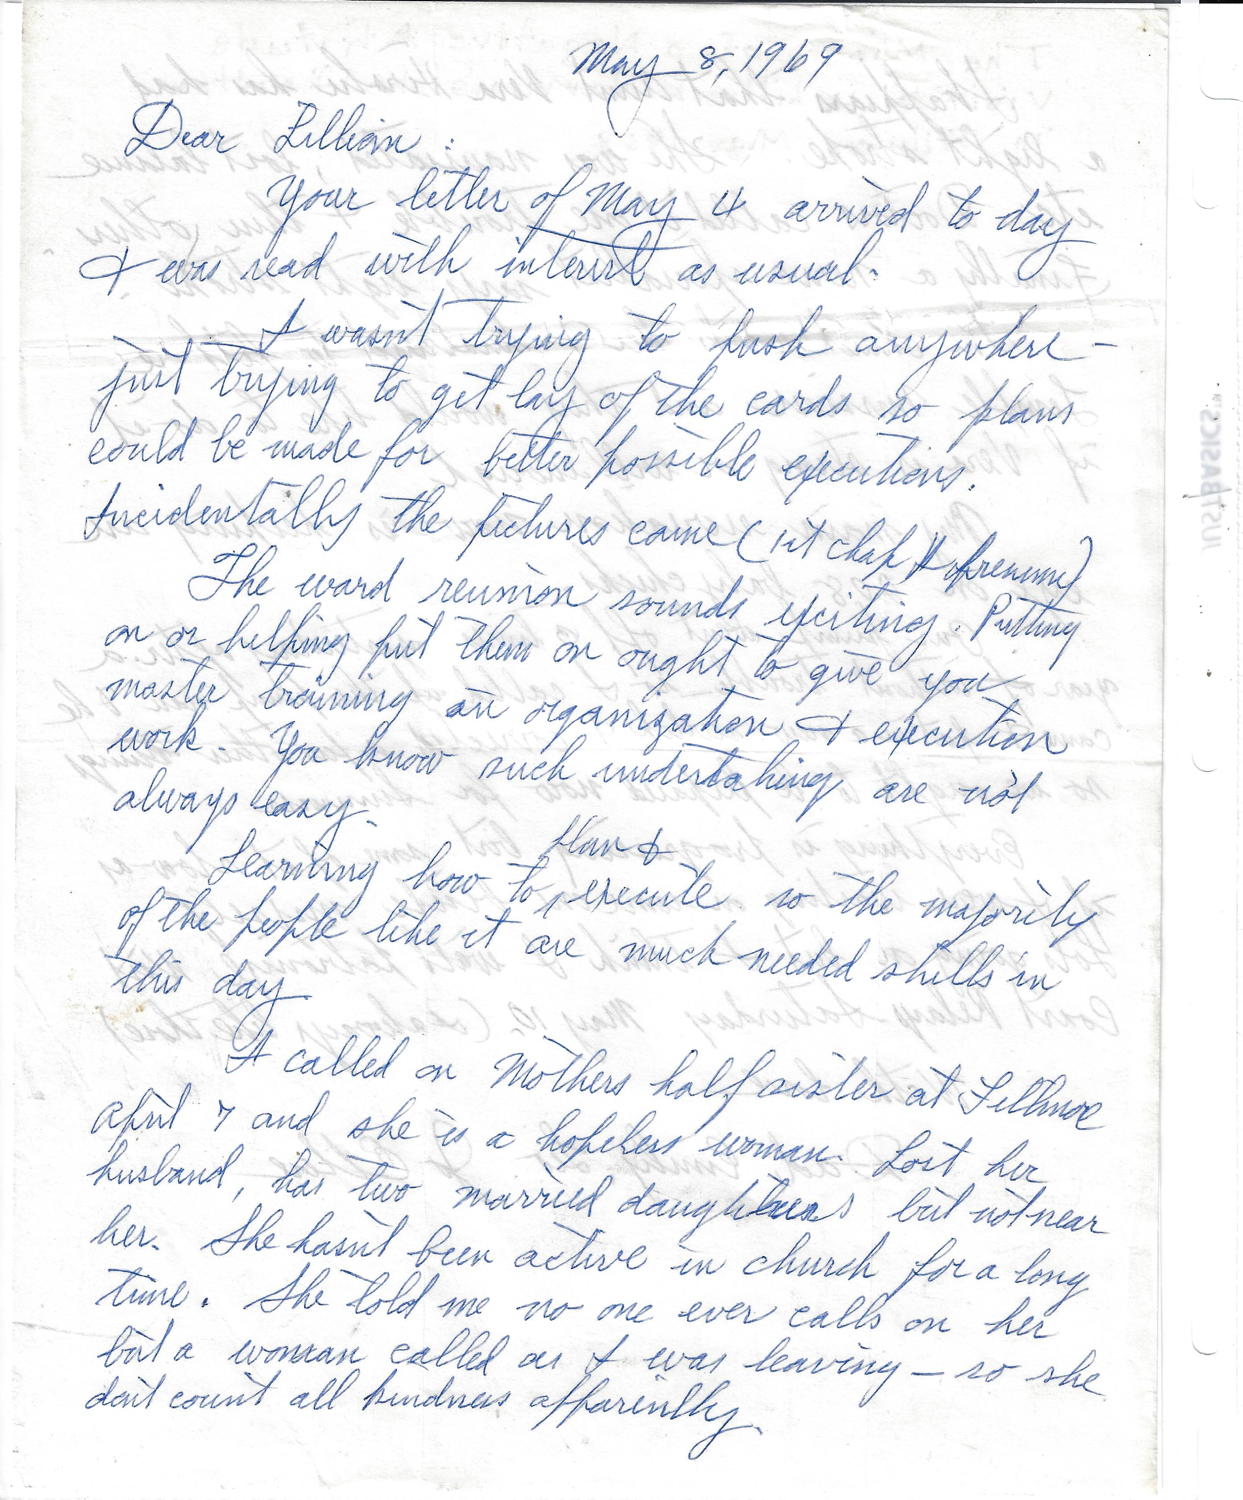 May 8, 1969
Dear Lillian :
Your letter of May 4 arrived to day
& was read with interest as usual.
I wasn't trying to push anywhere –
just trying to get lay of the cards so plans
could be made for better possible executions.
Incidentally the pictures came (1st chap &
The ward reunion sounds exciting. Putting
on or helping put them on ought to give you
master training an organization & execution
work. You know such undertaking are not
always easy.
plan &
Learning how to execute so the majority
of the people like it are much needed skills in
this day.
I called on Mothers half sister at Fillmore
April 7 and she is a hopeless woman. Lost her
husband, has two married daughters but not near
her. She hasn't been active in church for a long
time. She told me no one ever calls on her
but a woman called as I was leaving – so she
don't count all kindness apparently.
JUST BASICS